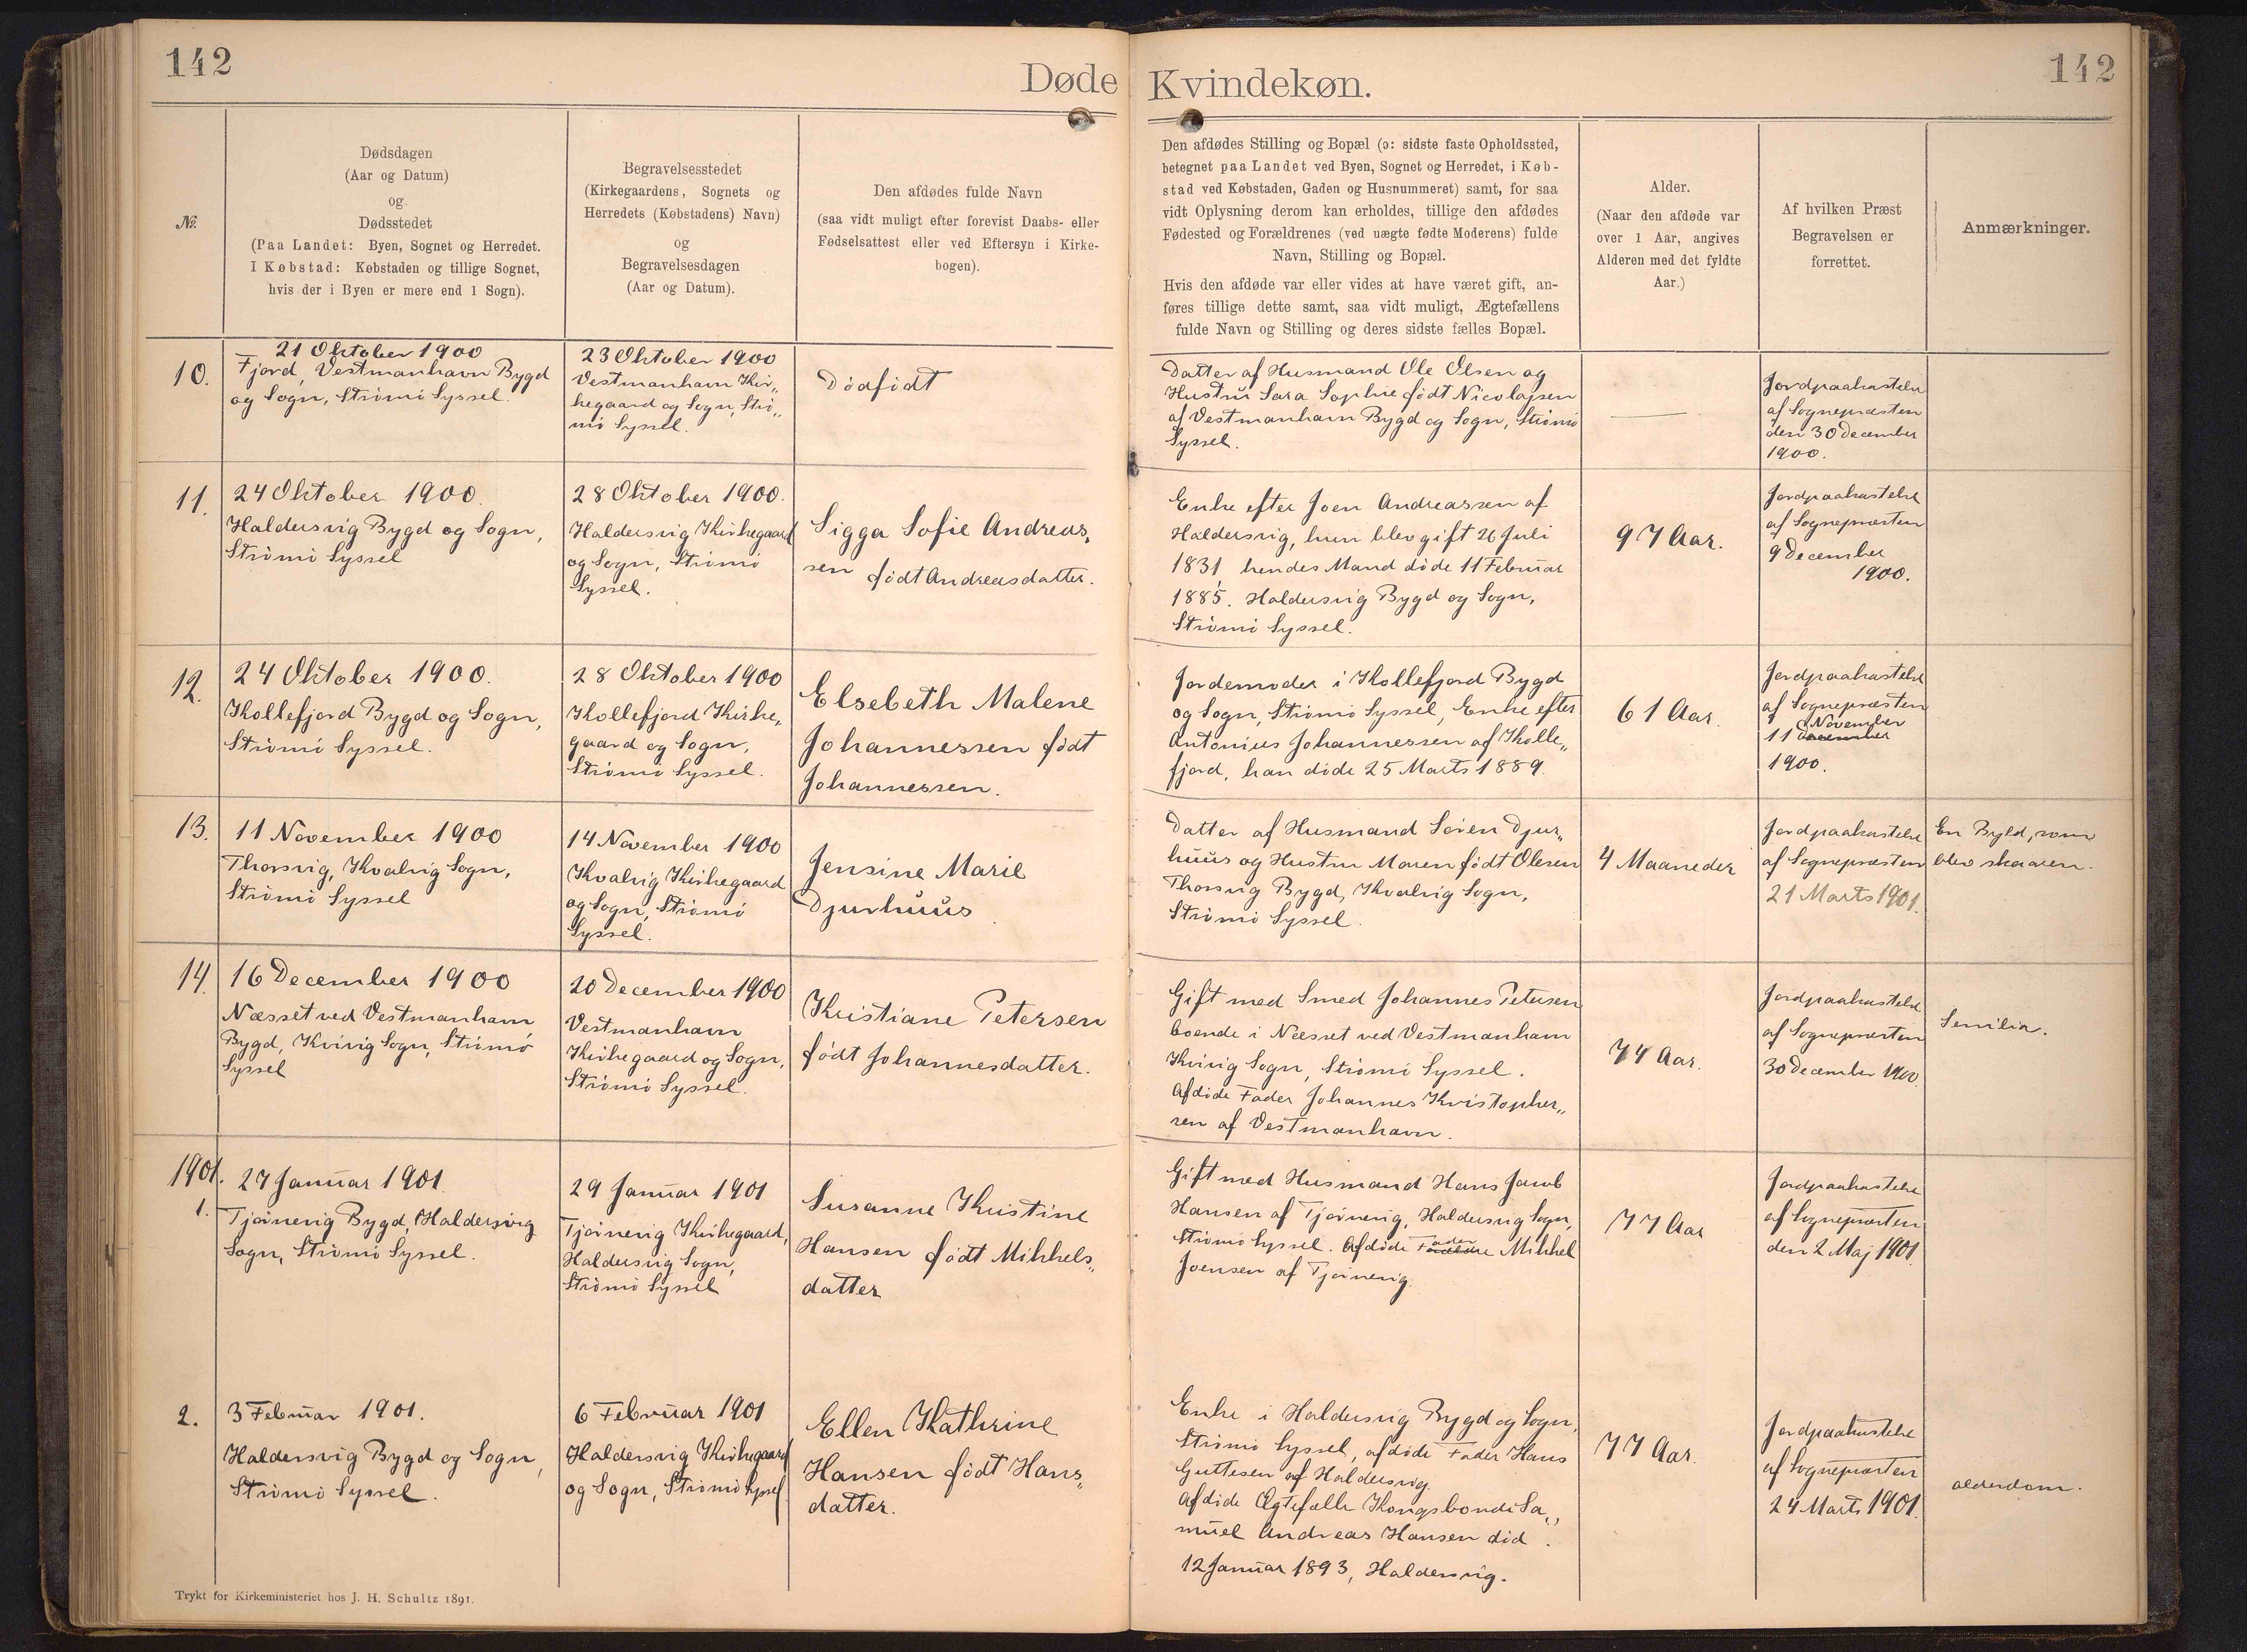 142
142
Døde Kvindekøn.
№.
Dødsdagen
(Aar og Datum)
og
Dødsstedet
(Paa Landet: Byen, Sognet og Herredet.
I Købstad: Købstaden og tillige Sognet,
hvis der i Byen er mere end 1 Sogn).
Begravelsesstedet
(Kirkegaardens, Sognets og
Herredets (Købstadens) Navn)
og
Begravelsesdagen
(Aar og Datum).
Den afdødes fulde Navn
(saa vidt muligt efter forevist Daabs- eller
Fødselsattest eller ved Eftersyn i Kirke-
bogen).
Den afdødes Stilling og Bopæl (ɔ: sidste faste Opholdssted,
betegnet paa Landet ved Byen, Sognet og Herredet, i Køb-
stad ved Købstaden, Gaden og Husnummeret) samt, for saa
vidt Oplysning derom kan erholdes, tillige den afdødes
Fødested og Forældrenes (ved uægte fødte Moderens) fulde
Navn, Stilling og Bopæl.
Hvis den afdøde var eller vides at have været gift, an-
føres tillige dette samt, saa vidt muligt, Ægtefællens
fulde Navn og Stilling og deres sidste fælles Bopæl.
Alder.
(Naar den afdøde var
over 1 Aar, angives
Alderen med det fyldte
Aar.)
Af hvilken Præst
Begravelsen er
forrettet.
Anmærkninger.
10.
21 Oktober 1900
Fjord, Vestmanhavn Bygd
og Sogn, Strömö Syssel.
23 Oktober 1900
Vestmanhavn Kir„
kegaard og Sogn, Strö„
mö Syssel.
Dödfödt
Datter af Husmand Ole Olsen og
Hustru Sara Sophie födt Nicolajsen
af Vestmanhavn Bygd og Sogn, Strömö
Syssel.
—
Jordpaakastelse
af Sognepræsten
den 30 December
1900.
11.
24 Oktober 1900.
Haldersvig Bygd og Sogn,
Strömö Syssel
28 Oktober 1900.
Haldersvig Kirkegaard
og Sogn, Strömö
Syssel.
Sigga Sofie Andreas„
sen födt Andreasdatter.
Enke efter Joen Andreassen af
Haldersvig, hun blev gift 26 Juli
1831 hendes Mand döde 11 Februar
1885. Haldersvig Bygd og Sogn,
Strömö Syssel.
97 Aar.
Jordpaakastelse
af Sognepræsten
9 December
1900.
12.
24 Oktober 1900.
Kollefjord Bygd og Sogn,
Strömö Syssel.
28 Oktober 1900
Kollefjord Kirke„
gaard og Sogn,
Strömö Syssel.
Elsebeth Malene
Johannessen födt
Johannessen.
Jordemoder i Kollefjord Bygd
og Sogn, Strömö Syssel, Enke efter
Antonius Johannessen af Kolle„
fjord, han döde 25 Marts 1889.
61 Aar.
Jordpaakastelse
af Sognepræsten
November
11 December
1900.
13.
11 November 1900
Thorsvig, Kvalvig Sogn,
Strömö Syssel
14 November 1900
Kvalvig Kirkegaard
og Sogn, Strömö
Syssel.
Jensine Marie
Djurhuus
Datter af Husmand Sören Djur„
huus og Hustru Maren födt Olesen
Thorsvig Bygd, Kvalvig Sogn,
Strömö Syssel.
4 Maaneder
Jordpaakastelse
af Sognepræsten
21 Marts 1901.
En Byld, som
blev skaaren.
14.
16 December 1900
Næsset ved Vestmanhavn
Bygd, Kvivig Sogn, Strömö
Syssel
20 December 1900
Vestmanhavn
Kirkegaard og Sogn,
Strömö Syssel.
Kristiane Petersen
födt Johannesdatter.
Gift med Smed Johannes Petersen
boende i Næsset ved Vestmanhavn
Kvivig Sogn, Strömö Syssel.
Afdöde Fader Johannes Kristopher„
sen af Vestmanhavn.
74 Aar.
Jordpaakastelse
af Sognepræsten
30 December 1900.
Senilia.
1901.
1.
27 Januar 1901
Tjörnevig Bygd, Haldersvig
Sogn, Strömö Syssel.
29 Januar 1901
Tjörnevig Kirkegaard,
Haldersvig Sogn,
Strömö Syssel
Susanne Kristine
Hansen födt Mikkels„
datter
Gift med Husmand Hans Jacob
Hansen af Tjörnevig, Haldersvig Sogn,
Strömö Syssel. Afdöde Fader Mikkel
Joensen af Tjörnevig.
77 Aar
Jordpaakastelse
af Sognepræsten
den 2 Maj 1901.
2.
3 Februar 1901.
Haldersvig Bygd og Sogn,
Strömö Syssel.
6 Februar 1901
Haldersvig Kirkegaard
og Sogn, Strömö Syssel
Ellen Kathrine
Hansen födt Hans„
datter.
Enke i Haldersvig Bygd og Sogn,
Strömö Syssel, afdöde Fader Hans
Guttesen af Haldersvig.
Afdöde Ægtefælle Kongsbonde Sa„
muel Andreas Hansen död
12 Januar 1893, Haldersvig.
77 Aar.
Jordpaakastelse
af Sognepræsten
24 Marts 1901.
alderdom.
Trykt for Kirkeministeriet hos J. H. Schultz 1891.